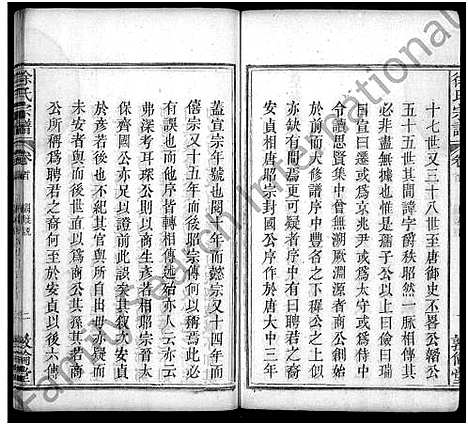 徐氏宗譜
十七世又三十八世至唐御史不畧公稽公
五十五世其間諱字爵秩昭然一脈相傳其
必非盡無據也惟是孺子公以上曰儉曰瑣
曰宣曰選或為侍中或為京兆尹或為太守或為侍
令讀思賢集中曾無溯厥淵源者商公創始
於前而大修譜序中豐名之下駢公以上缺
亦缺焉其間不無可疑者序中有曰聘君之裔
安貞相唐昭宗封國公序作於唐大中三年
蓋宣宗年號也閱十年而懿宗又十四年而
僖宗又十五年而後昭宗傳何以稱焉此必
有誤也而他序皆轉相傳述始亦人云亦云
弗深考耳琛公則以商生彥若相昭宗晉太
保齊國公亦足以證前此誤矣何敘次安貞
於彥若後也不紀其官與所自出毋乃
未有商也與後世直以為商公其孫其若商
公所稱為聘君之裔何至於安貞以後六傳
徐氏宗譜
卷首
一
敦倫堂
敦倫堂
FamilySearch International